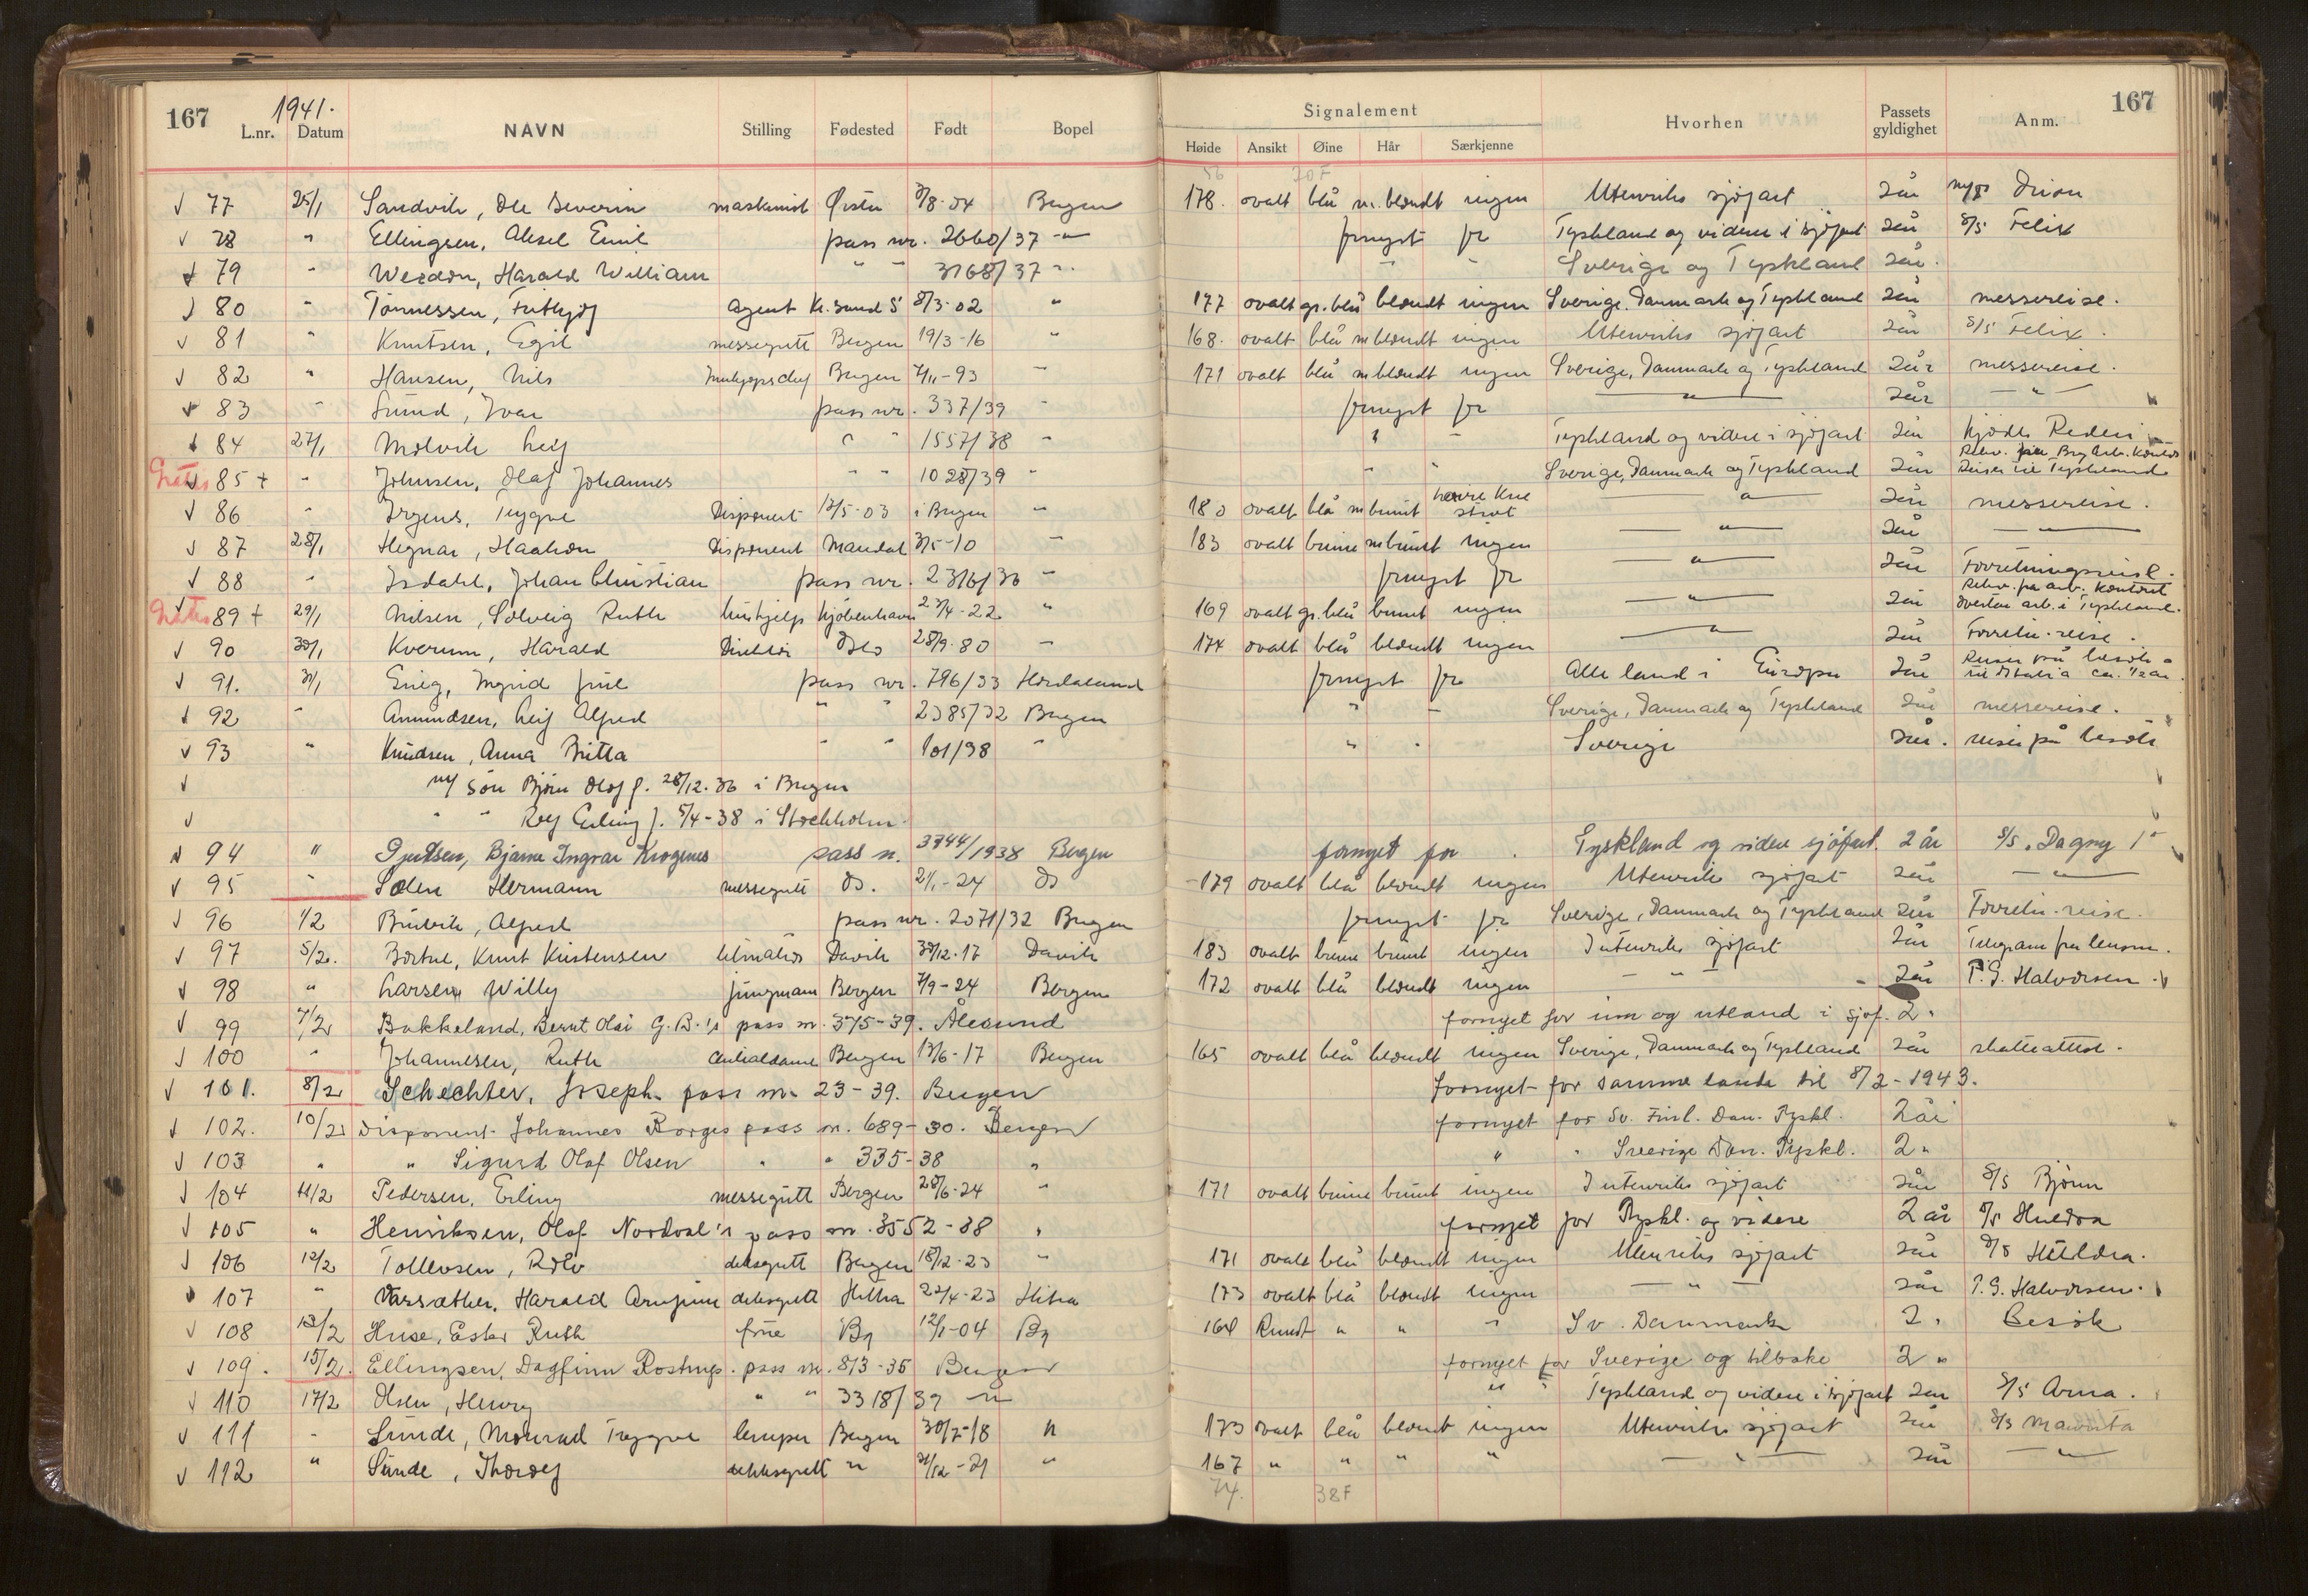 167 1941. 167
L.nr. Datum NAVN Stilling Fødested Født Bopel Signalement Hvorhen Passets gyldighet Anm.
Høide Ansikt Øine Hår Særkjenne
56 70 F
77 25/1 Sandvik, Ole Severin maskinist Ørsta 3/8-04 Bergen 178. ovalt blå m. blondt ingen Utenriks sjøfart 2 år Orion
78 " Ellingsen, Aksel Emil pass nr. 2660/37 " fornyet for Tyskland og videre i sjøfart 2 år S/S Felix
79 " Harald William " " 3168/37 " " " Sverige og Tyskland 2 år.
80 " Tønnessen, Fritjof agent Kr.sund S 8/3-02 " 177 ovalt gr.blå blondt ingen Sverige, Danmark og Tyskland 2 år messereise.
81 " Knutsen, Egil messegutt Bergen 19/3-16 " 168. ovalt blå m blondt ingen Utenriks sjøfart 2 år S/S Felix.
82 " Hansen, Nils Innkjøpschef Bergen 7/11-93 " 171 ovalt blå m blondt ingen Sverige, Danmark og Tyskland 2 år messereise.
83 " Sund, Ivar pass nr. 337/39 " fornyet for " 2 år "
84 27/1 Molvik Leif " " 1557/38 " " " Tyskland og videre i sjøfart 2 år Kjøde Rederi
Gratis 85 + " Johnsen, Olaf Johannes " " 1028/39 " " " Sverige, Danmark og Tyskland 2 år Reiser til Tyskland
86 " Irgens, Trygve Disponent 12/5-03 i Bergen " 180 ovalt blå m brunt venstre kne stivt " 2 år messereise.
87 28/1 Hegnar, Haakon Disponent Mandal 3/5-10 " 183 ovalt brune m brunt ingen " 2 år "
88 " Isdahl, Johan Christian pass nr. 2316/36 " fornyet for " 2 år Forretningsreise.
Gratis 89 + 29/1 Nilsen, Solveig Ruth hushjelp Kjøbenhavn 23/4-22 " 169 ovalt gr.blå brunt ingen " 2 år Rekv. fra arb. kontoret arb. i Tyskland.
90 30/1 Kverum, Harald Direktør Oslo 28/9-80 " 174 ovalt blå blondt ingen " 2 år Forretn. reise.
91. 31/1 Ingrid frue pass nr. 796/33 Hordaland fornyet for Alle land i Europa 2 år Reiser på besøk til Italia ca. 1/2 år.
92 " Amundsen, Leif Alfred " " 2385/32 Bergen " " Sverige, Danmark og Tyskland 2 år messereise.
93 " Knudsen, Anna Britta " " 101/38 " " " Sverige 2 år. reiser på besøk
m/ søn Bjørn Olof f. 28/12-36 i Bergen
" " Rolf Erling f. 5/4-38 i Stockholm
94 " Bjarne Ingvar Krogenes pass n. 3744/1938 Bergen fornyet for Tyskland og videre sjøfart. 2 år S/S. Dagny I
95 " Solen Hermann messegutt do. 2/1-24 do 179 ovalt blå blondt ingen Utenriks sjøfart 2 år "
96 1/2 Alfred pass nr. 2071/32 Bergen fornyet for Sverige, Danmark og Tyskland 2 år Forretn. reise.
97 5/2. Knut Kristensen telmatros Davik 30/12-17 Davik 183 ovalt brune brunt ingen Intenriks sjøfart 2 år Telegram fra lensm.
98 " Larsen Willy jungmann Bergen 7/9-24 Bergen 172 ovalt blå blondt ingen " 2 år P.G. Halvorsen.
99 7/2 Bakkeland, Bernt Olai G. B.'s pass nr. 375-39. Ålesund fornyet for inn og utland i sjøf. 2 "
100 " Johannesen, Ruth Bergen 12/6-17 Bergen 165 ovalt blå blondt ingen Sverige, Danmark og Tyskland 2 år skatteattest.
101. 8/2 Schechter, Joseph. pass nr. 23-39. Bergen fornyet for samme lande til 8/2-1943.
102. 10/2 Disponent Johannes Borges pass nr. 689-30. Bergen fornyet for Sv. Finl. Dan. Tyskl. 2 år
103 " " Sigurd Olaf Olsen " " 335-38 " " " Sverige Dan. Tyskl. 2 "
104 11/2 Pedersen, Erling messegutt Bergen 28/6-24 " 171 ovalt brune brunt ingen Intenriks sjøfart 2 år S/S Bjørn
105 " Henriksen, Olaf Nordval's pass nr. 3552-38 " fornyet for Tyskl. og videre 2 år S/S Huldra
106 12/2 Tollevsen, Rolv dekksgutt Bergen 18/12-23 " 171 ovalt blå blondt ingen Utenriks sjøfart 2 år S/S Huldra.
107 " Harald Arnfinn dekksgutt Hitra 22/4-23 Hitra 173 ovalt blå blondt ingen " 2 år P.G. Halvorsen.
108 13/2 Huse, Ester Ruth frue Bg 12/1-04 Bg 164 Rundt " " " Sv. Danmark 2 " Besøk
109. 15/2. Ellingsen, Dagfinn Rostrup. pass nr. 813-35 Bergen fornyet for Sverige og tilbake 2 "
110 17/2 Olsen, Henry " " 3318/39 " " " Tyskland og videre i sjøfart 2 år S/S Arna.
111 " Sunde, Monrad Trygve lemper Bergen 30/7-18 " 173 ovalt blå blondt ingen Utenriks sjøfart 2 år
112 " Sunde, Thorolf dekksgutt " 21/12-21 " 167 " " " " " 2 år "
74. 38 F